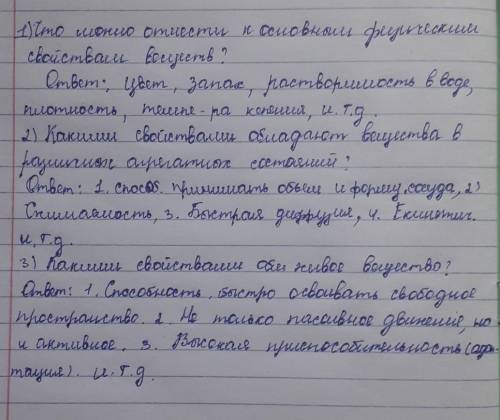 1) Что можно отнести к основным физическим
свойствам веществ?
Ответ: цвет, запах, растворимость в воде,
плотность, темпе-ра кипения, и.т.д.
2) Какими свойствами обладают вещества в
различных агрегатных состояний?
Ответ: 1. способ. принимать объем и форму сосуда, 2)
Сжимаемость, 3. Быстрая диффузия, 4.
и.т.д.
3) Какими свойствами обл. живое вещество?
Ответ: 1. Способность быстро осваивать свободное
пространство. 2. Не только пассивное движение, но
и активное. 3. Высокая приспособительность (адап
тация). и.т.д.